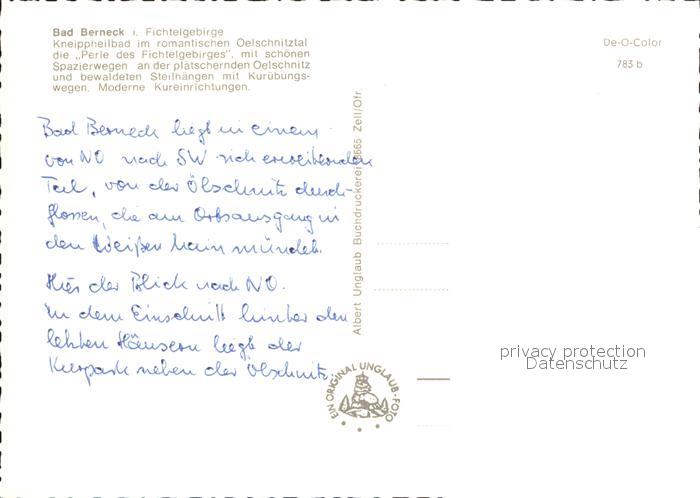 Bad Berneck i. Fichtelgebirge
Kneippheilbad im romantischen Oelschnitztal
die „Perle des Fichtelgebirges", mit schönen
Spazierwegen an der plätschernden Oelschnitz
und bewaldeten Steilhängen mit Kurübungs-
wegen. Moderne Kureinrichtungen.
De-O-Color
783 b
Bad Berneck liegt in einem
von NO nach SW sich erweiternden
Tal, von der Ölschnitz durch-
flossen, die am Ortsausgang in
den Weißen Main mündet.
Hier der Blick nach NO.
In dem Einschnitt hinter den
letzten Häusern liegt der
Kurpark neben der Ölschnitz.
Albert Unglaub Buchdruckerei 8665 Zell/Ofr.
EIN ORIGINAL UNGLAUB-FOTO
privacy protection
Datenschutz